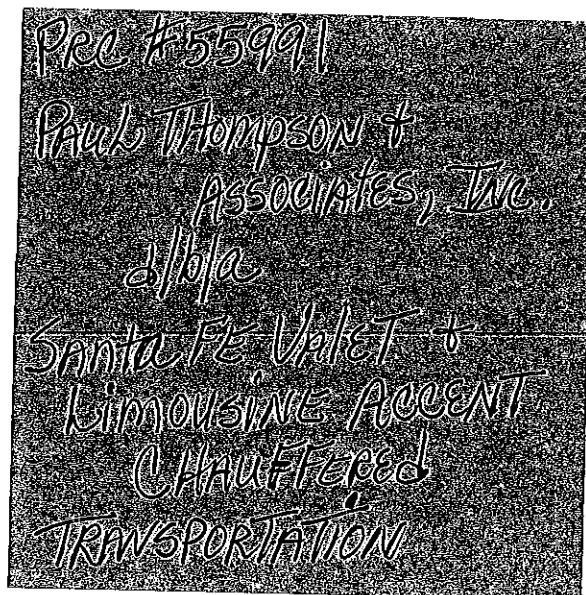 PRC #55991
PAUL THOMPSON &
ASSOCIATES, INC.
d/b/a
SANTA FE VALET &
LIMOUSINE ACCENT
CHAUFFERED
TRANSPORTATION